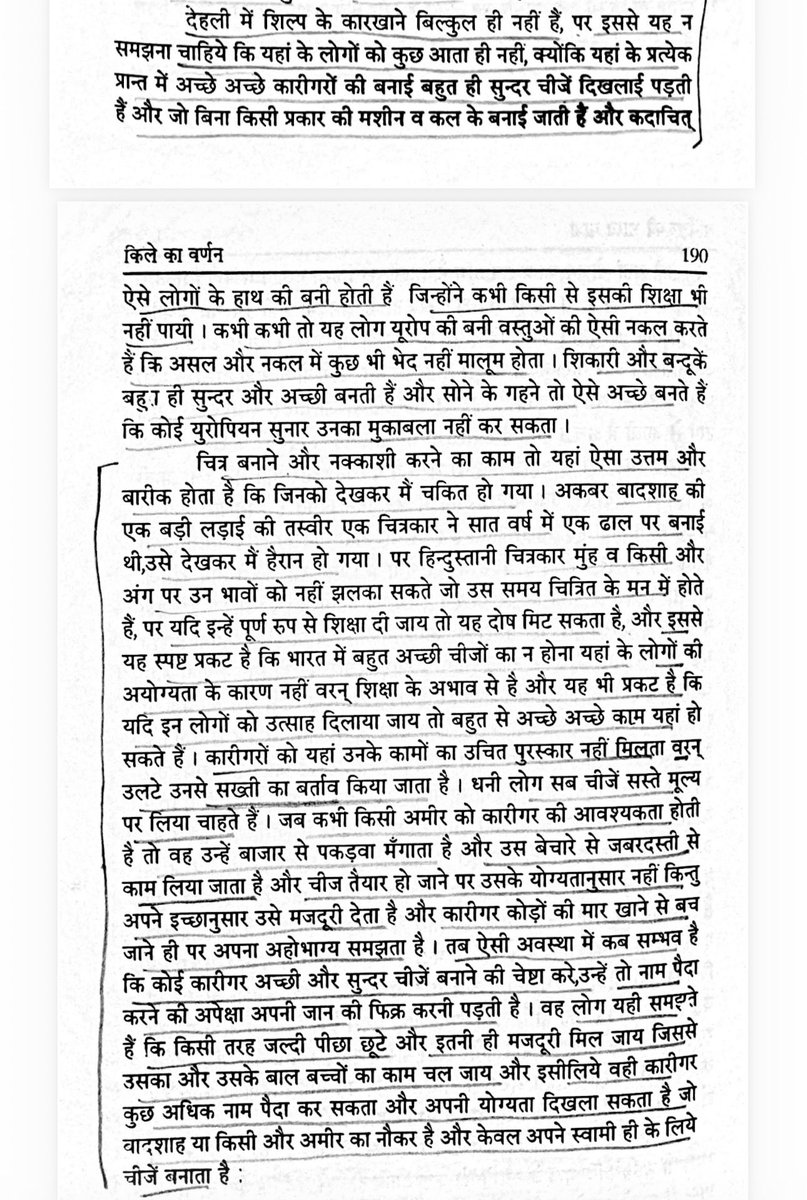 देहली में शिल्प के कारखाने बिल्कुल ही नहीं हैं, पर इससे यह न
समझना चाहिये कि यहां के लोगों को कुछ आता ही नहीं, क्योंकि यहां के प्रत्येक
प्रान्त में अच्छे अच्छे कारीगरों की बनाई बहुत ही सुन्दर चीजें दिखलाई पड़ती
हैं और जो बिना किसी प्रकार की मशीन व कल के बनाई जाती हैं और कदाचित्
किले का वर्णन 190
ऐसे लोगों के हाथ की बनी होती हैं जिन्होंने कभी किसी से इसकी शिक्षा भी
नहीं पायी । कभी कभी तो यह लोग यूरोप की बनी वस्तुओं की ऐसी नकल करते
हैं कि असल और नकल में कुछ भी भेद नहीं मालूम होता । शिकारी और बन्दूकें
ही सुन्दर और अच्छी बनती हैं और सोने के गहने तो ऐसे अच्छे बनते हैं
कि कोई युरोपियन सुनार उनका मुकाबला नहीं कर सकता ।
चित्र बनाने और नक्काशी करने का काम तो यहां ऐसा उत्तम और
बारीक होता है कि जिनको देखकर मैं चकित हो गया । अकबर बादशाह की
एक बड़ी लड़ाई की तस्वीर एक चित्रकार ने सात वर्ष में एक ढाल पर बनाई
थी,उसे देखकर मैं हैरान हो गया । पर हिन्दुस्तानी चित्रकार मुंह व किसी और
अंग पर उन भावों को नहीं झलका सकते जो उस समय चित्रित के मन में होते
हैं, पर यदि इन्हें पूर्ण रुप से शिक्षा दी जाय तो यह दोष मिट सकता है, और इससे
यह स्पष्ट प्रकट है कि भारत में बहुत अच्छी चीजों का न होना यहां के लोगों की
अयोग्यता के कारण नहीं वरन् शिक्षा के अभाव से है और यह भी प्रकट है कि
यदि इन लोगों को उत्साह दिलाया जाय तो बहुत से अच्छे अच्छे काम यहां हो
सकते हैं । कारीगरों को यहां उनके कामों का उचित पुरस्कार नहीं मिलता वरन्
उलटे उनसे सख्ती का बर्ताव किया जाता है । धनी लोग सब चीजें सस्ते मूल्य
पर लिया चाहते हैं । जब कभी किसी अमीर को कारीगर की आवश्यकता होती
है तो वह उन्हें बाजार से पकड़वा मँगाता है और उस बेचारे से जबरदस्ती से
काम लिया जाता है और चीज तैयार हो जाने पर उसके योग्यतानुसार नहीं किन्तु
अपने इच्छानुसार उसे मजदूरी देता है और कारीगर कोड़ों की मार खाने से बच
जाने ही पर अपना अहोभाग्य समझता है । तब ऐसी अवस्था में कब सम्भव है
कि कोई कारीगर अच्छी और सुन्दर चीजें बनाने की चेष्टा करे,उन्हें तो नाम पैदा
करने की अपेक्षा अपनी जान की फिक्र करनी पड़ती है । वह लोग यही समझते
हैं कि किसी तरह जल्दी पीछा छूटे और इतनी ही मजदूरी मिल जाय जिससे
उसका और उसके बाल बच्चों का काम चल जाय और इसीलिये वही कारीगर
कुछ अधिक नाम पैदा कर सकता और अपनी योग्यता दिखला सकता है जो
वादशाह या किसी और अमीर का नौकर है और केवल अपने स्वामी ही के लिये
चीजें बनाता है :